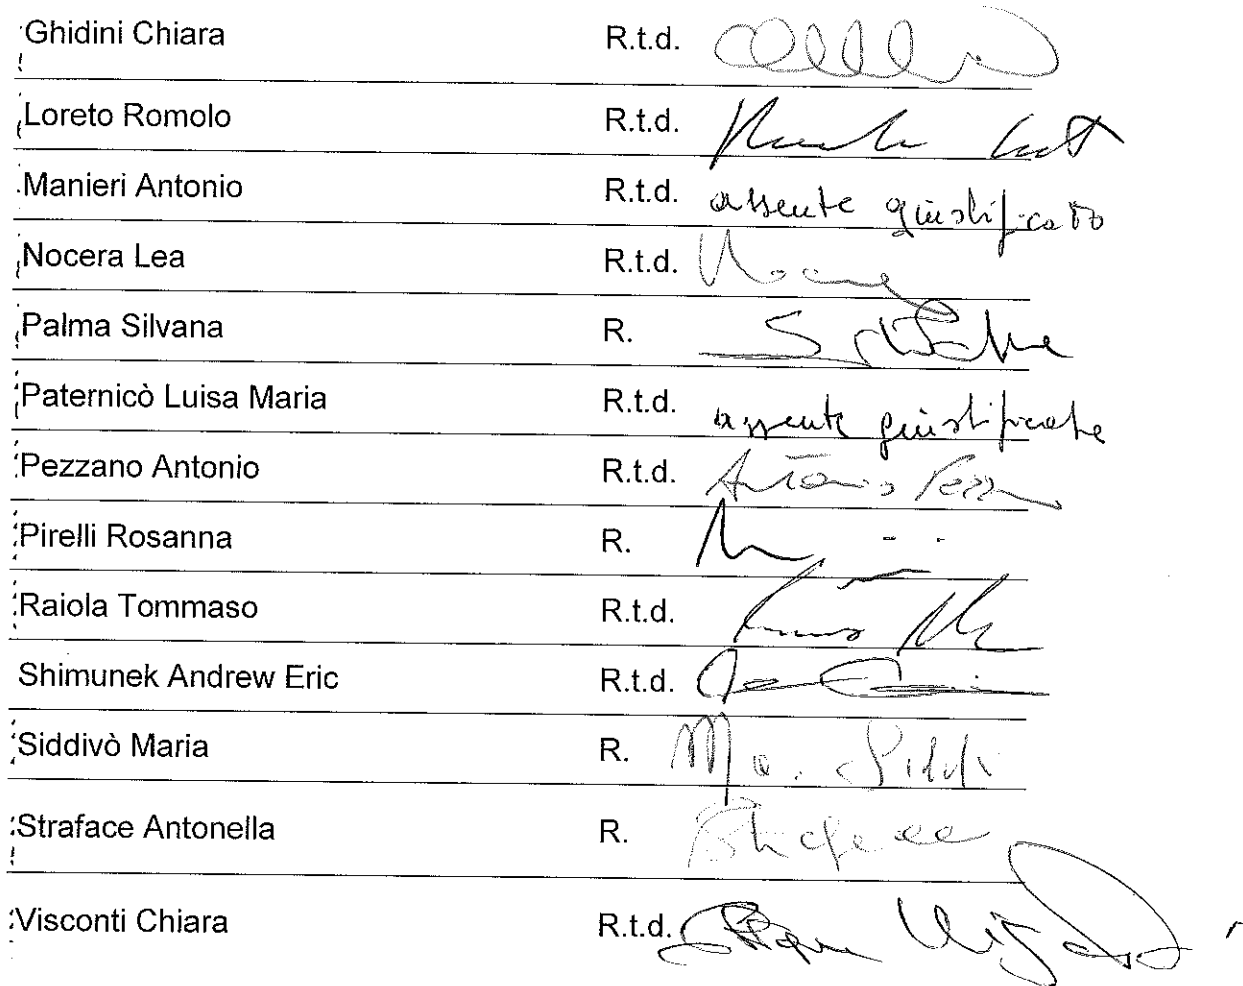 Ghidini Chiara R.t.d.
Loreto Romolo R.t.d.
Manieri Antonio R.t.d. assente giustificato
Nocera Lea R.t.d.
Palma Silvana R.
Paternicò Luisa Maria R.t.d. assente giustificata
Pezzano Antonio R.t.d. Antonio Pezzano
Pirelli Rosanna R.
Raiola Tommaso R.t.d.
Shimunek Andrew Eric R.t.d.
Siddivò Maria R.
Straface Antonella R.
Visconti Chiara R.t.d.